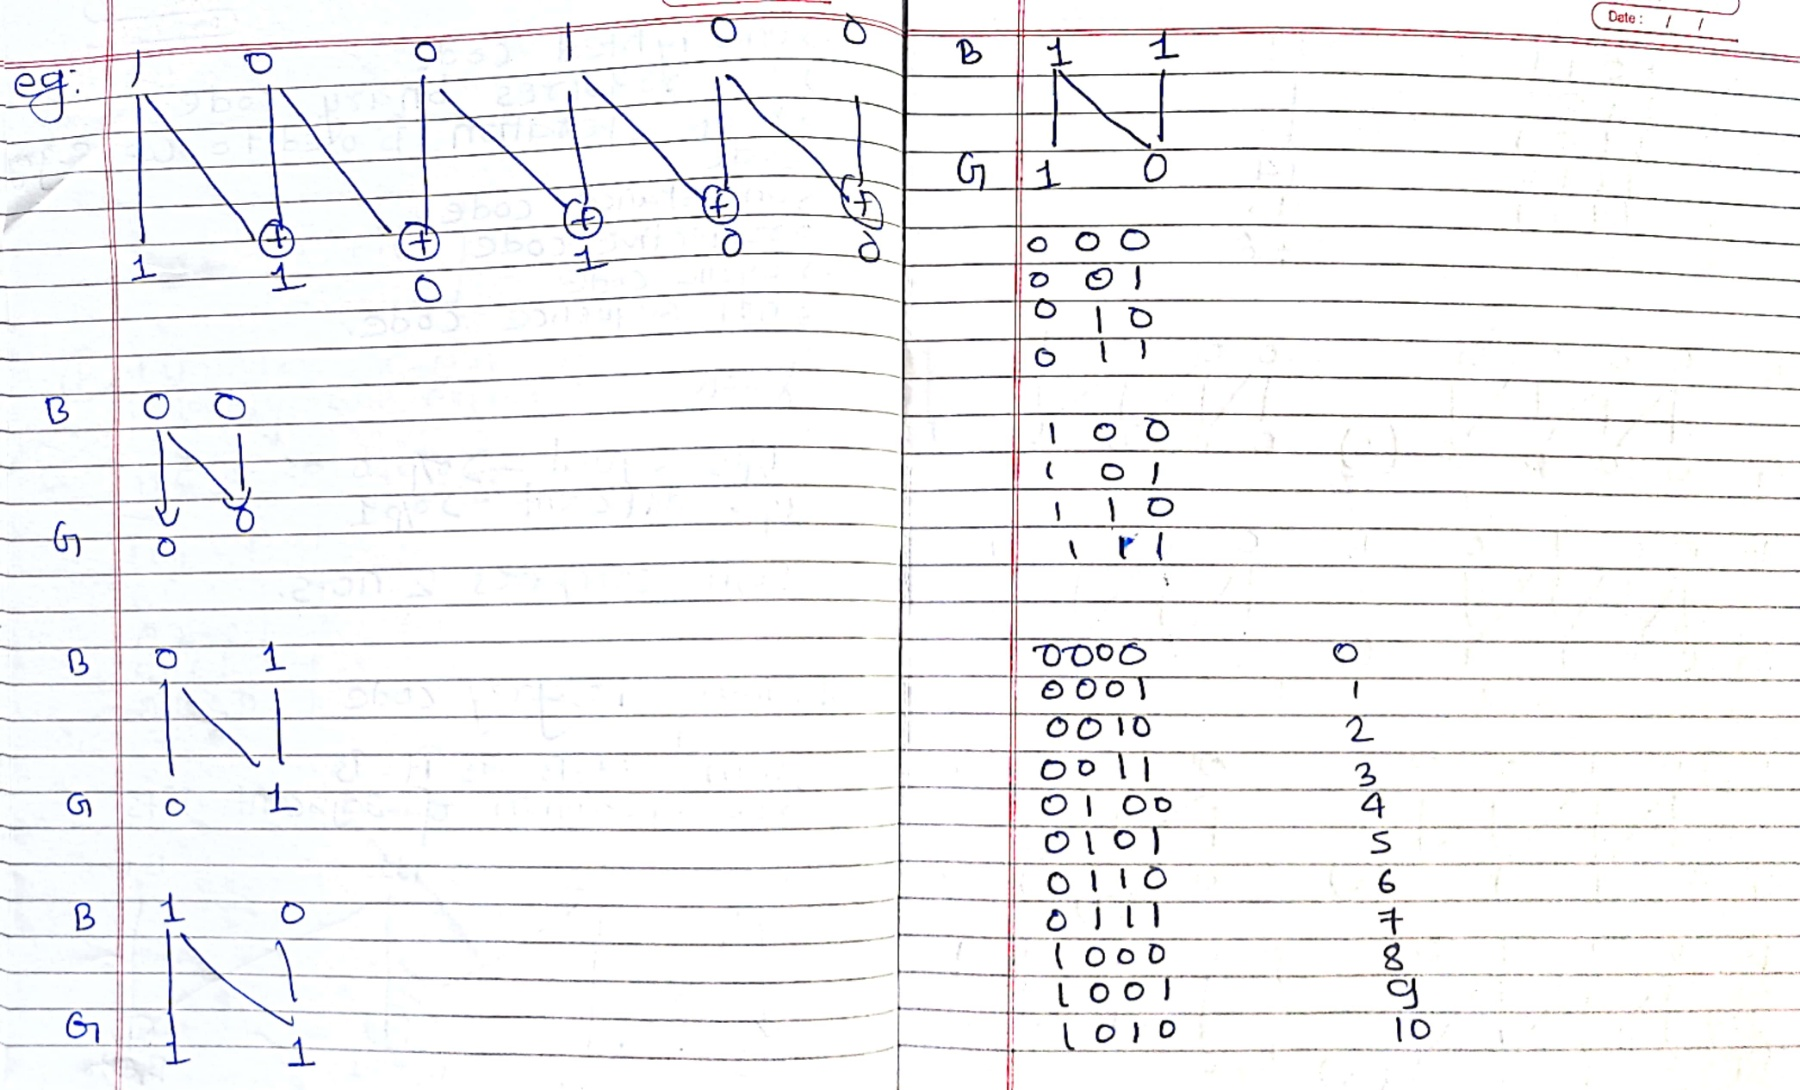 eg: 1 0 0 1 0 0
+ + + + +
1 1 0 1 0 0
B 0 0
G 0 0
B 0 1
G 0 1
B 1 0
G 1 1
Date: / /
B 1 1
G 1 0
0 0 0
0 0 1
0 1 0
0 1 1
1 0 0
1 0 1
1 1 0
1 1 1
0000 0
0001 1
0010 2
0011 3
0100 4
0101 5
0110 6
0111 7
1000 8
1001 9
1010 10